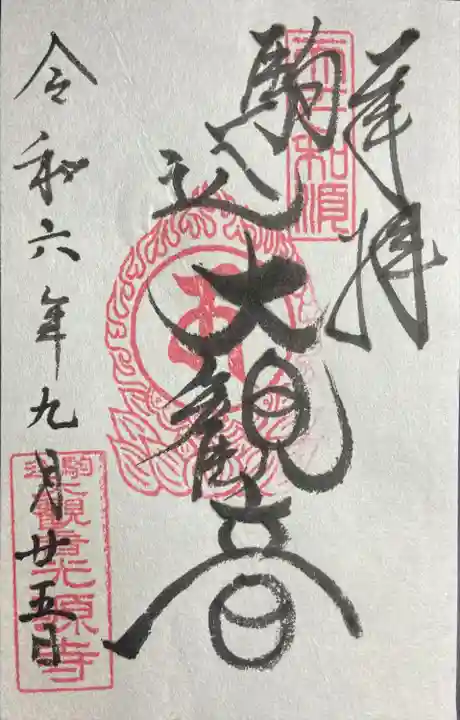 奉拝
天下和順
駒込大観音
令和六年九月廿五日
駒込大観音光源寺